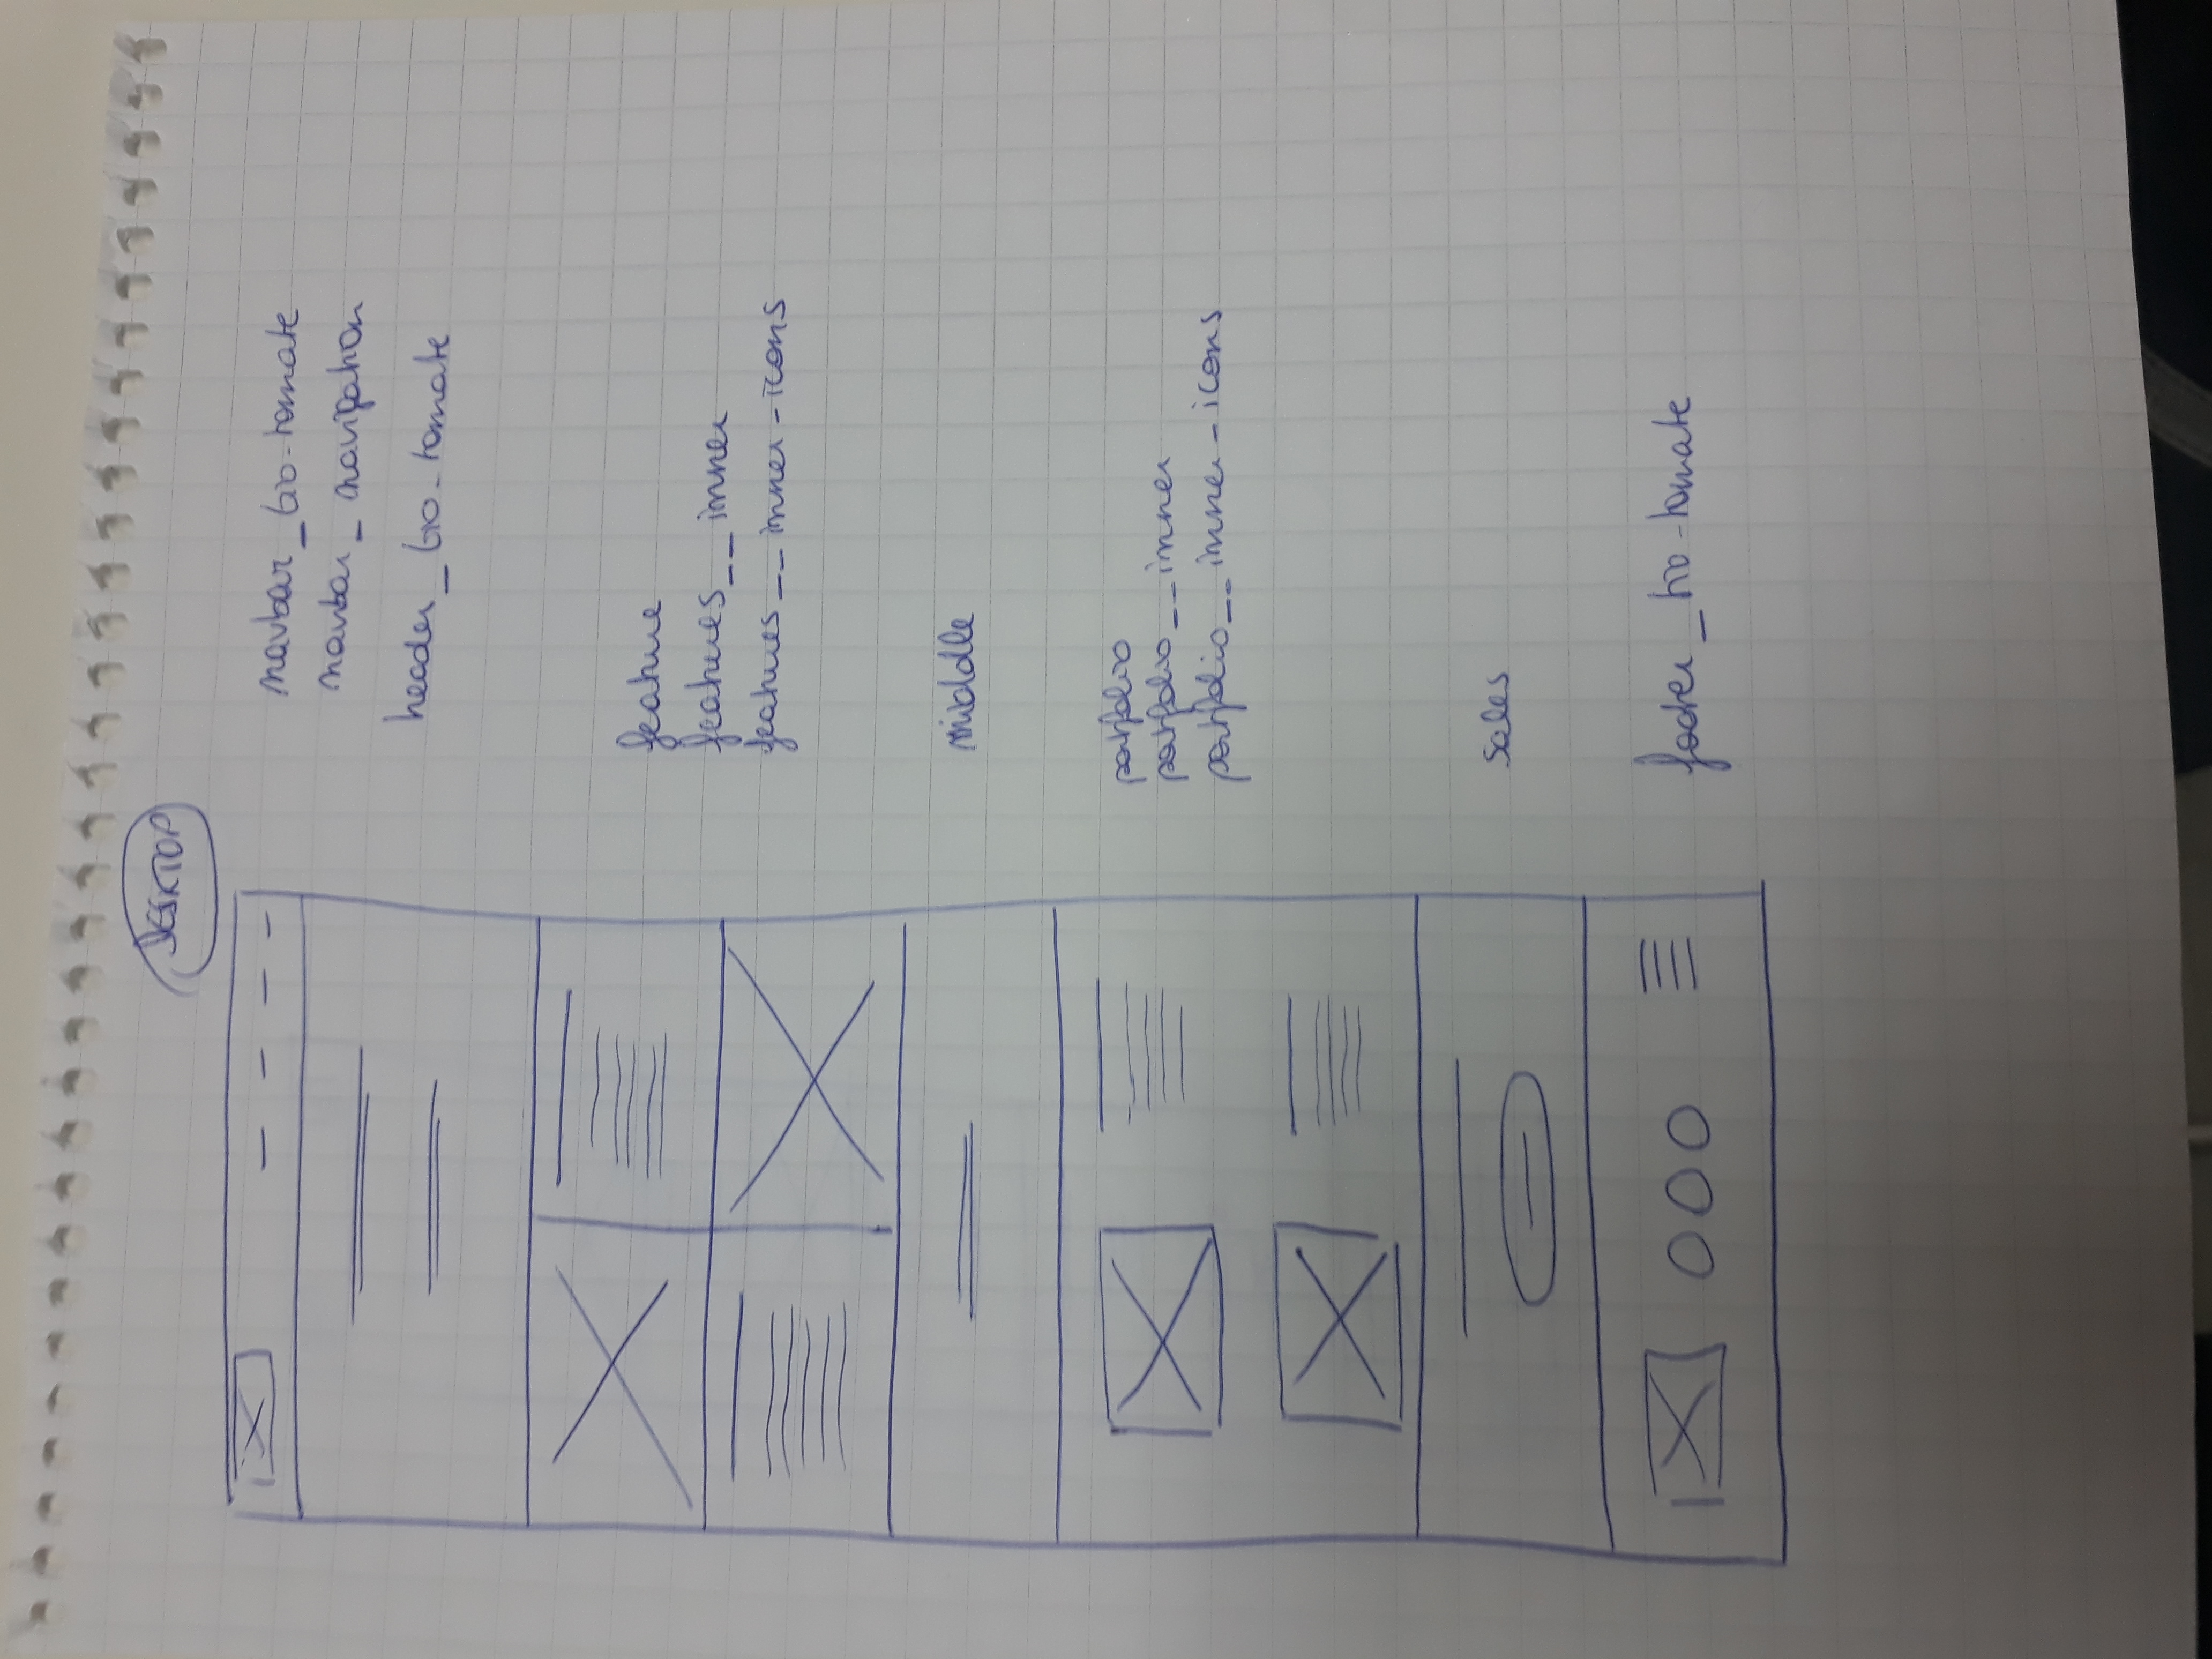 DESKTOP
navbar_bio-tomate
navbar_navigation
header_bio-tomate
feature
features__inner
features__inner-icons
middle
portfolio
portfolio__inner
portfolio__inner-icons
sales
footer_bio-tomate